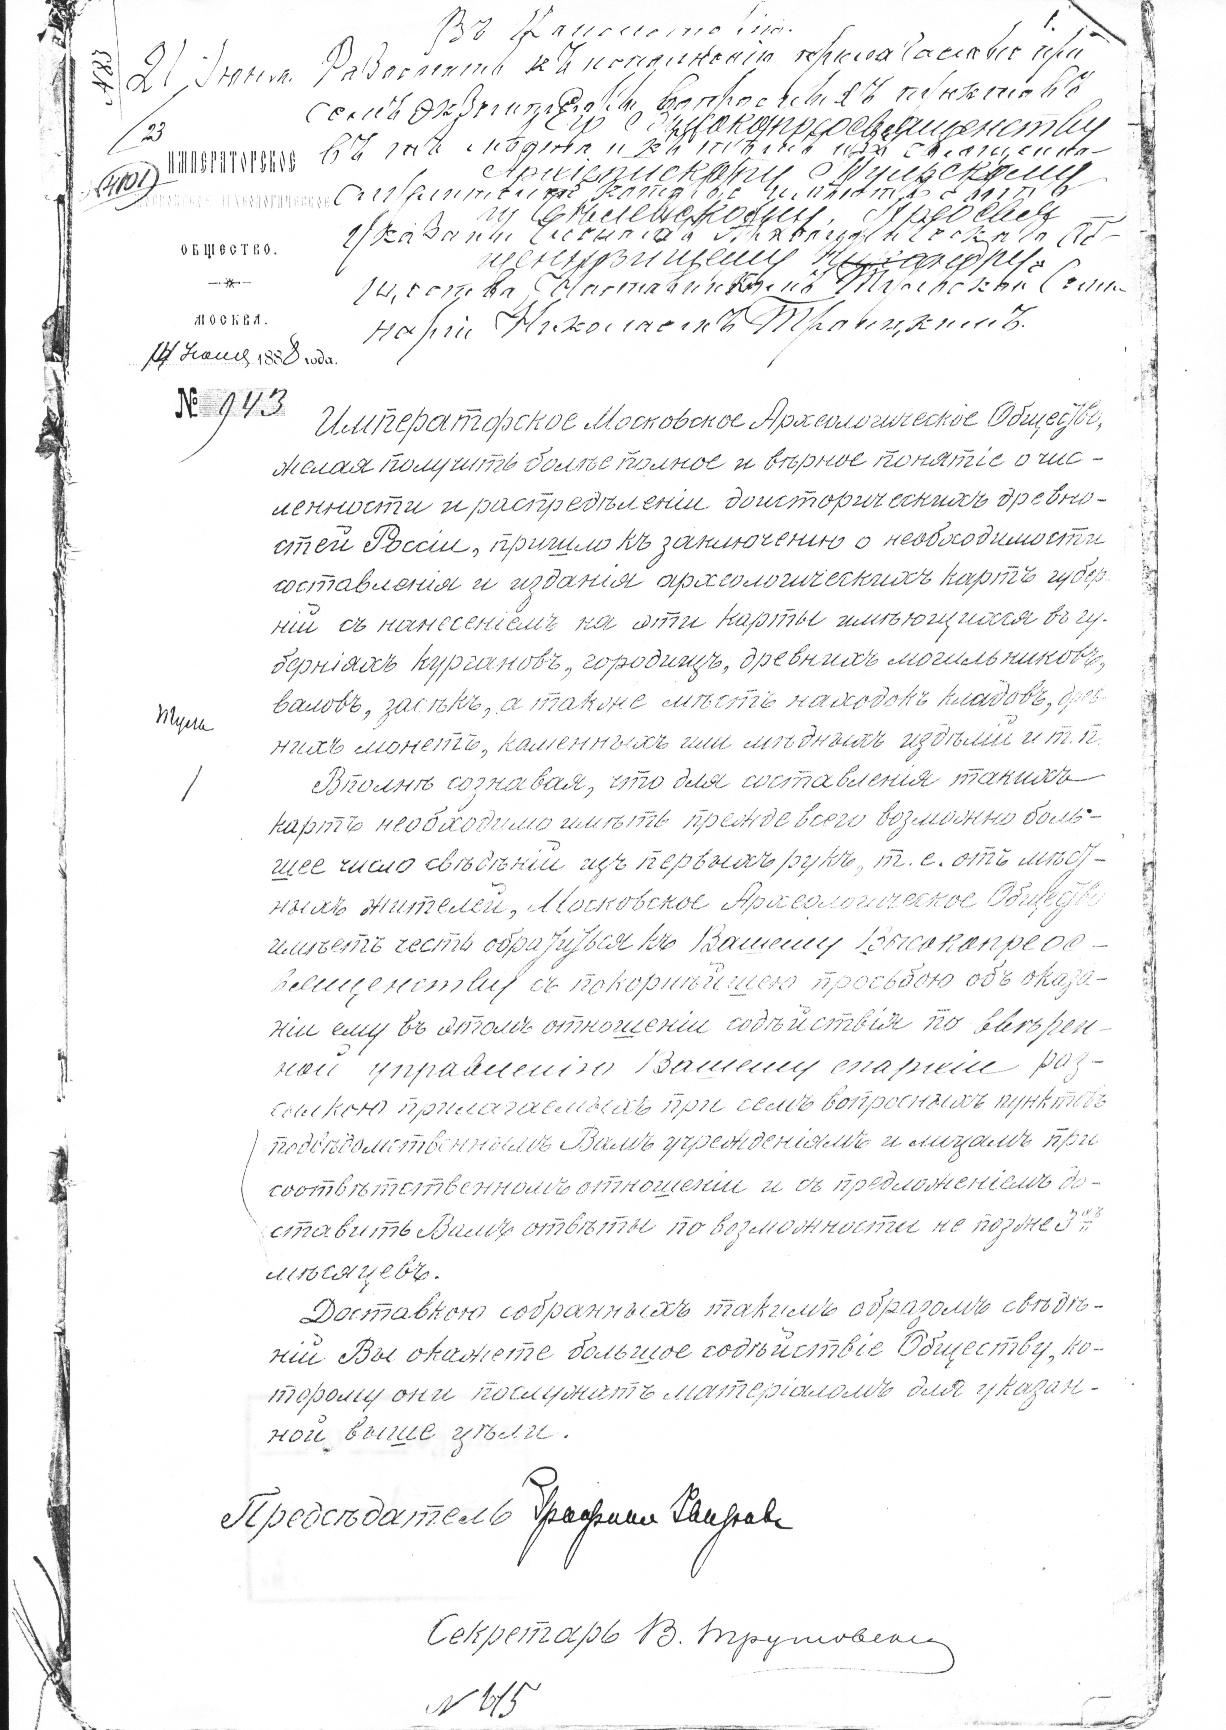 Въ Консисторію.
1.
№83
21 Іюня. Разослать къ исполненію прилагаемые при
семъ экземпляры вопросныхъ пунктовъ
Его Высокопреосвященству
23
въ
ИМПЕРАТОРСКОЕ
Архіепископу Тульскому
(4101)
МОСКОВСКОЕ АРХЕОЛОГИЧЕСКОЕ
и Бѣлевскому, Преосвя
ОБЩЕСТВО.
указаны членомъ Археологическаго Об-
щеннѣйшему Никандру.
МОСКВА.
щества, Наставникомъ Тульской Семи-
наріи Николаемъ Троицкимъ.
14 Іюня 1888 года.
№ 943
Императорское Московское Археологическое Общество,
желая получить болѣе полное и вѣрное понятіе о чис-
ленности и распредѣленіи доисторическихъ древно-
стей Россіи, пришло къ заключенію о необходимости
составленія и изданія археологическихъ картъ губер-
ній съ нанесеніемъ на эти карты имѣющихся въ гу-
берніяхъ кургановъ, городищъ, древнихъ могильниковъ,
валовъ, засѣкъ, а также мѣстъ находокъ кладовъ, древ-
нихъ монетъ, каменныхъ или мѣдныхъ издѣлій и т.п.
Тула
Вполнѣ сознавая, что для составленія такихъ
картъ необходимо имѣть прежде всего возможно боль-
шее число свѣдѣній изъ первыхъ рукъ, т.е. отъ мѣст-
ныхъ жителей, Московское Археологическое Общество
имѣетъ честь обратиться къ Вашему Высокопреос-
вященству съ покорнѣйшею просьбою объ оказа-
ніи ему въ этомъ отношеніи содѣйствія по ввѣрен-
ной управленію Вашему епархіи раз-
сылкою прилагаемыхъ при семъ вопросныхъ пунктовъ
подвѣдомственнымъ Вамъ учрежденіямъ и лицамъ при
соотвѣтственномъ отношеніи и съ предложеніемъ до-
ставить Вамъ отвѣты по возможности не позже 3хъ
мѣсяцевъ.
Доставкою собранныхъ такимъ образомъ свѣдѣ-
ній Вы окажете большое содѣйствіе Обществу, ко-
торому они послужатъ матеріаломъ для указан-
ной выше цѣли.
Предсѣдатель Графиня Уварова
Секретарь В. Трутовскій
№ 615